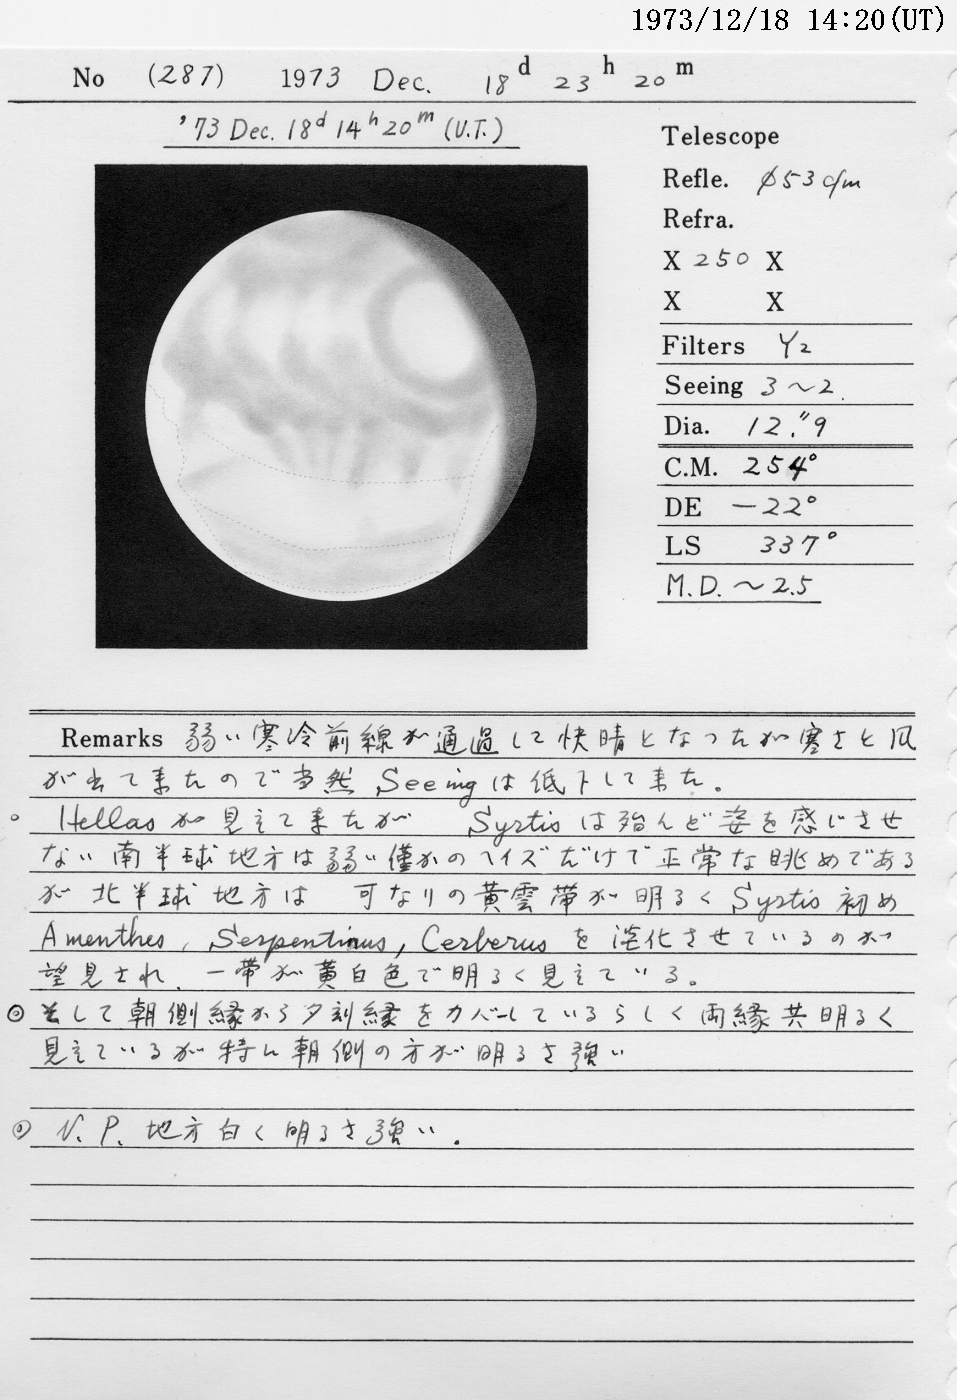 1973/12/18 14:20(UT)
No (287) 1973 Dec. 18d 23h 20m
'73 Dec. 18d 14h 20m (U.T.)
Telescope
Refle. φ53 c/m
Refra.
X 250 X
X X
Filters Y2
Seeing 3～2
Dia. 12."9
C.M. 254°
DE －22°
LS 337°
M.D. ～2.5
Remarks 弱い寒冷前線が通過して快晴となったが寒さと風
が出て来たので当然 Seeingは低下して来た。
。 Hellasが見えて来たが Syrtisは殆んど姿を感じさせ
ない 南半球地方は弱い僅かのヘイズだけで正常な眺めである
が 北半球地方は 可なりの黄雲帯が明るく Syrtis 初め
Amenthes, Serpentinus, Cerberus を淡化させているのが
望見され、一帯が黄白色で明るく見えている。
◎ そして朝側縁から夕刻縁をカバーしているらしく両縁共明るく
見えているが特に朝側の方が明るさ強い
◎ N.P. 地方白く明るさ強い.